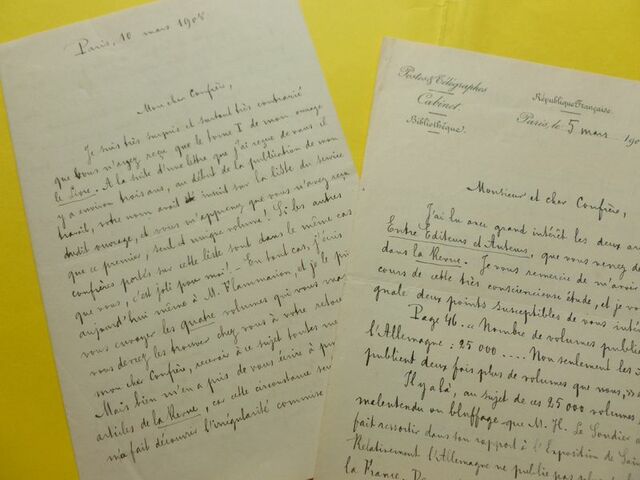 Paris, 10 mars 1908
Mon cher Confrère,
Je suis très surpris et surtout très contrarié
que vous n'ayez reçu que le tome I de mon ouvrage
le Livre. A la suite d'une lettre que j'ai reçue de vous il
y a environ trois ans, au début de la publication de mon
travail, votre nom avait été inscrit sur la liste du service
dudit ouvrage, et vous m'apprenez que vous n'avez reçu
que ce premier, seul et unique volume ! Si les autres
confrères portés sur cette liste sont dans le même cas
que vous, c'est joli pour moi ! — En tout cas, j'écris
aujourd'hui même à M. Flammarion, et je le prie
vous envoyer les quatre volumes qui vous man
vous devrez les trouver chez vous à votre retour
mon cher Confrère, recevoir à ce sujet toutes me
Mais bien m'en a pris de vous écrire à pro
articles de la Revue, car cette circonstance seu
m'a fait découvrir l'irrégularité commise
Postes & Télégraphes
Cabinet
Bibliothèque.
République Française
Paris, le 5 mars 190
Monsieur et cher Confrère,
J'ai lu avec grand intérêt les deux ar
Entre Éditeurs et Auteurs, que vous venez de
dans la Revue. Je vous remercie de m'avoir
cours de cette très consciencieuse étude, et je vo
gnale deux points susceptibles de vous inté
Page 46. « Nombre de volumes publié
l'Allemagne : 25 000 .... Non seulement les
publient deux fois plus de volumes que nous, »
Il y a là, au sujet de ces 25 000 volumes,
malentendu ou bluffage que M. H. Le Soudier a
fait ressortir dans son rapport à l'Exposition de Sai
Relativement l'Allemagne ne publie pas
la France.